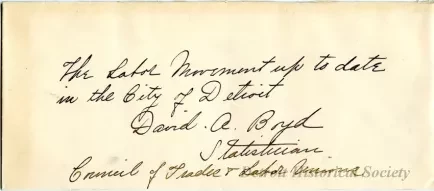 The Labor Movement up to date
in the City of Detroit
David. A. Boyd
Statistician
Council of Trades & Labor Unions
Detroit Historical Society